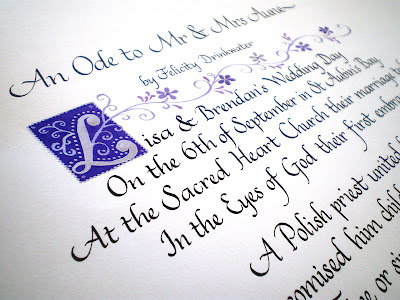 An Ode to Mr & Mrs
by Felicity Drinkwater
Lisa & Brendan's Wedding Day
On the 6th of September in St Aubin's Bay
At the Sacred Heart Church their marriage
In the Eyes of God their first
A Polish priest united
him
or